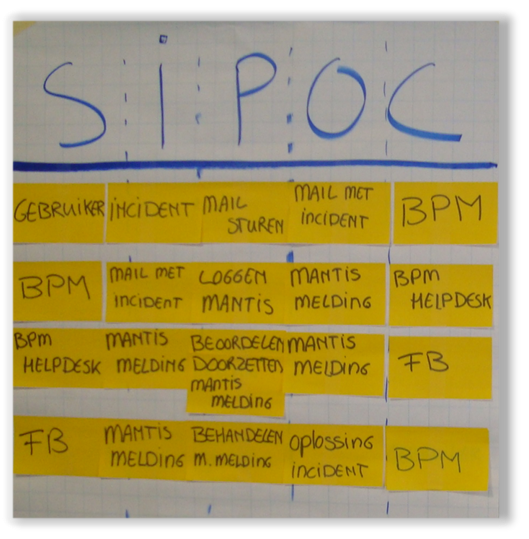 S I P O C
GEBRUIKER
INCIDENT
MAIL
STUREN
MAIL MET
INCIDENT
BPM
BPM
MAIL MET
INCIDENT
LOGGEN
MANTIS
MANTIS
MELDING
BPM
HELPDESK
BPM
HELPDESK
MANTIS
MELDING
BEOORDELEN
DOORZETTEN
MANTIS
MELDING
MANTIS
MELDING
FB
FB
MANTIS
MELDING
BEHANDELEN
M. MELDING
OPLOSSING
INCIDENT
BPM